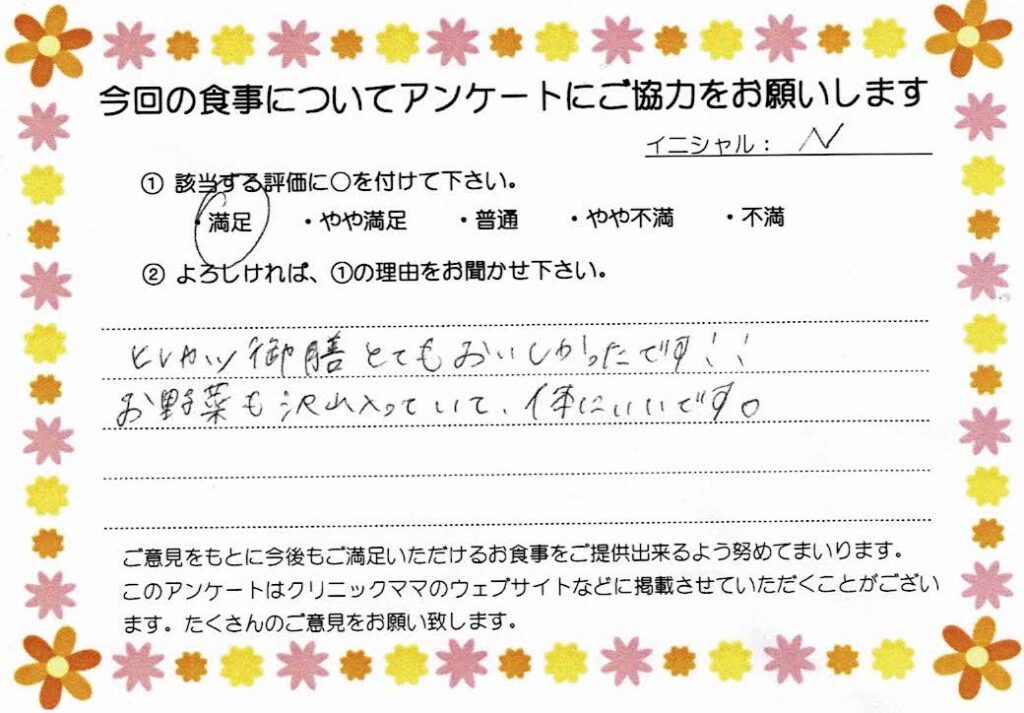 今回の食事についてアンケートにご協力をお願いします
イニシャル： N
① 該当する評価に〇を付けて下さい。
・満足 ・やや満足 ・普通 ・やや不満 ・不満
② よろしければ、①の理由をお聞かせ下さい。
ヒレカツ御膳とてもおいしかったです!!
お野菜も沢山入っていて、体にいいです。
ご意見をもとに今後もご満足いただけるお食事をご提供出来るよう努めてまいります。
このアンケートはクリニックママのウェブサイトなどに掲載させていただくことがござい
ます。たくさんのご意見をお願い致します。